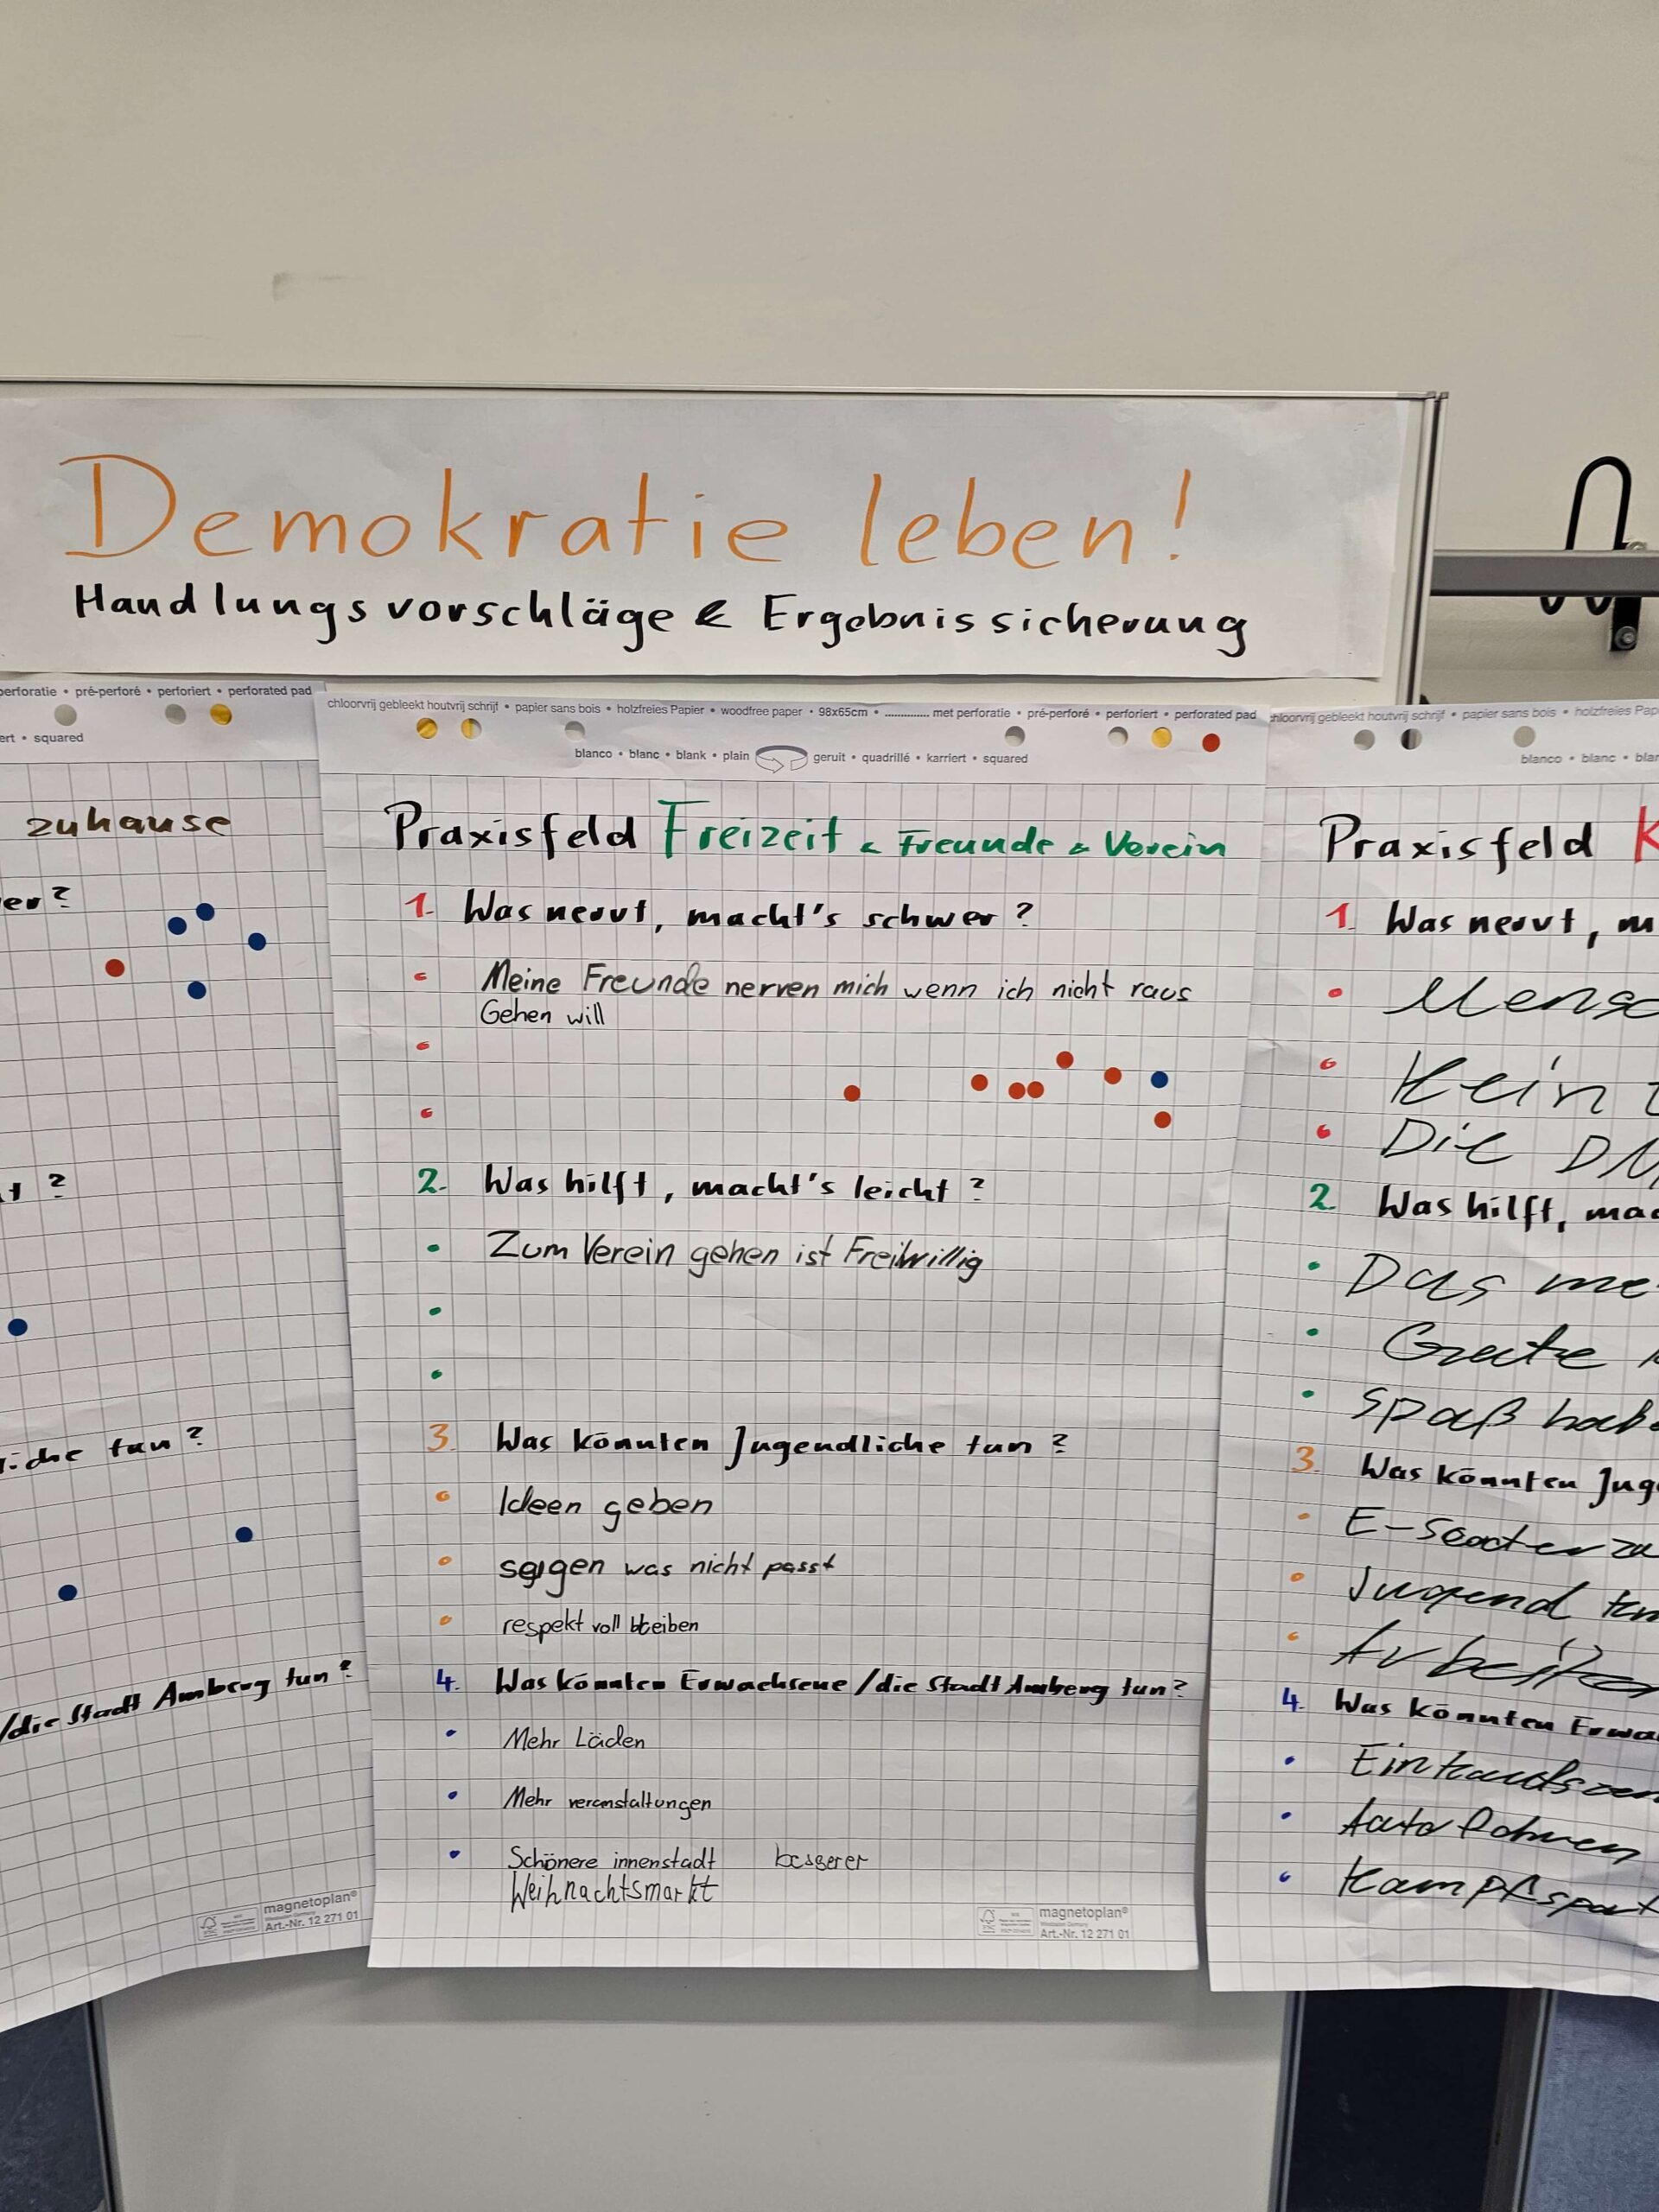 Demokratie leben!
Handlungsvorschläge & Ergebnissicherung
perforatie • pré-perforé • perforiert • perforated pad
squared
zuhause
?
?
tun ?
/die Stadt Amberg tun?
magnetoplan®
Art.-Nr. 12 271 01
chloorvrij gebleekt houtvrij schrijf • papier sans bois • holzfreies Papier • woodfree paper • 98x65cm • ............. met perforatie • pré-perforé • perforiert • perforated pad
blanco • blanc • blank • plain geruit • quadrillé • karriert • squared
Praxisfeld Freizeit & Freunde & Verein
1. Was nervt, macht's schwer?
Meine Freunde nerven mich wenn ich nicht raus
Gehen will
2. Was hilft, macht's leicht?
• Zum Verein gehen ist Freiwillig
3. Was könnten Jugendliche tun?
Ideen geben
sagen was nicht passt
respekt voll bleiben
4. Was könnten Erwachsene/die Stadt Amberg tun?
• Mehr Läden
• Mehr veranstaltungen
• Schönere innenstadt besserer
Weihnachtsmarkt
magnetoplan®
Art.-Nr. 12 271 01
chloorvrij gebleekt houtvrij schrijf • papier sans bois • holzfreies
blanco • blanc •
Praxisfeld K
1. Was nervt,
Kein
Die
2. Was hilft,
• Das
•
• Spaß
3. Was könnten
E-Scooter
Jugend
4. Was könnten
•
•
•